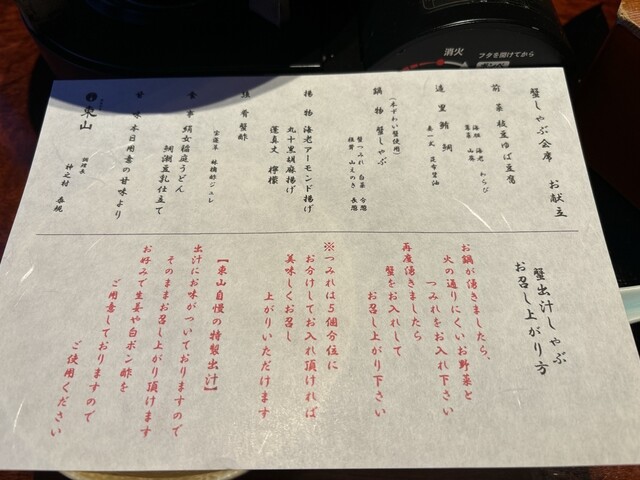 蟹しゃぶ会席　お献立
前菜 枝豆ゆば豆腐
海胆 海老 わらび
造里 鮪 鯛
昆布醤油
鍋物 蟹しゃぶ
(本ずわい蟹使用)
蟹つみれ 白菜
椎茸 山えのき 長葱
揚物 海老アーモンド揚げ
丸十黒胡麻揚げ
蓮真丈 檸檬
蟹酢
林檎酢ジュレ
食事 絹女稲庭うどん
鯛潮豆乳仕立て
甘味 本日用意の甘味より
東山
調理長
蟹出汁しゃぶ
お召し上がり方
お鍋が湧きましたら、
火の通りにくいお野菜と
つみれをお入れ下さい
再度湧きましたら
蟹をお入れして
お召し上がり下さい
※つみれは5個分位に
お分けしてお入れ頂ければ
美味しくお召し
上がりいただけます
【東山自慢の特製出汁】
出汁にお味がついておりますので
そのままお召し上がり頂けます
お好みで生姜や白ポン酢を
ご用意しておりますので
ご使用ください
消火
フタを開けてから